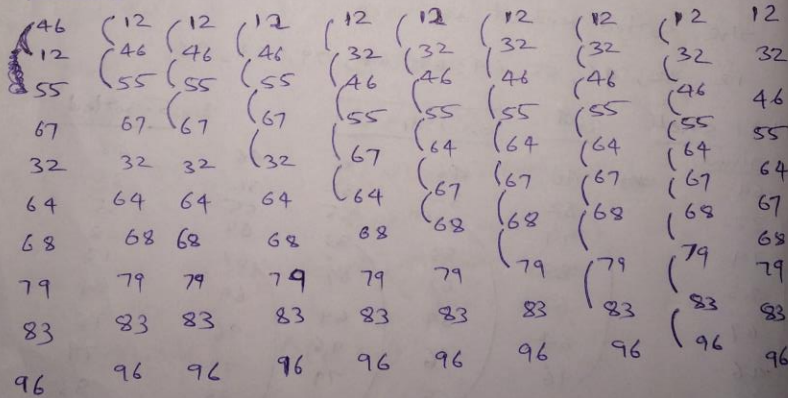 46 12 12 12 12 12 12 12 12 12
12 46 46 46 32 32 32 32 32 32
55 55 55 55 46 46 46 46 46 46
67 67 67 67 55 55 55 55 55 55
32 32 32 32 67 64 64 64 64 64
64 64 64 64 64 67 67 67 67 67
68 68 68 68 68 68 68 68 68 68
79 79 79 79 79 79 79 79 79 79
83 83 83 83 83 83 83 83 83 83
96 96 96 96 96 96 96 96 96 96